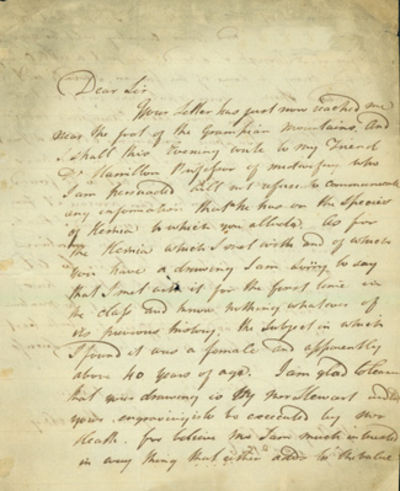 Dear Sir
Your Letter has just now reached me
near the foot of the Grampian Mountains. And
I shall this Evening write to my Friend
Dr Hamilton Professor of midwifery who
I am persuaded will not refuse to communicate
any information that he has on the Species
of Hernia to which you allude. As for
the Hernia which I met with and of which
you have a drawing I am sorry to say
that I met with it for the first time in
the class and know nothing whatever of
its previous history. the subject in which
I found it was a female and apparently
above 40 years of age. I am glad to learn
that your drawing is by Mr Stewart and
your engraving is to be executed by Mr
Heath. for believe me I am much interested
in every thing that either adds to the value